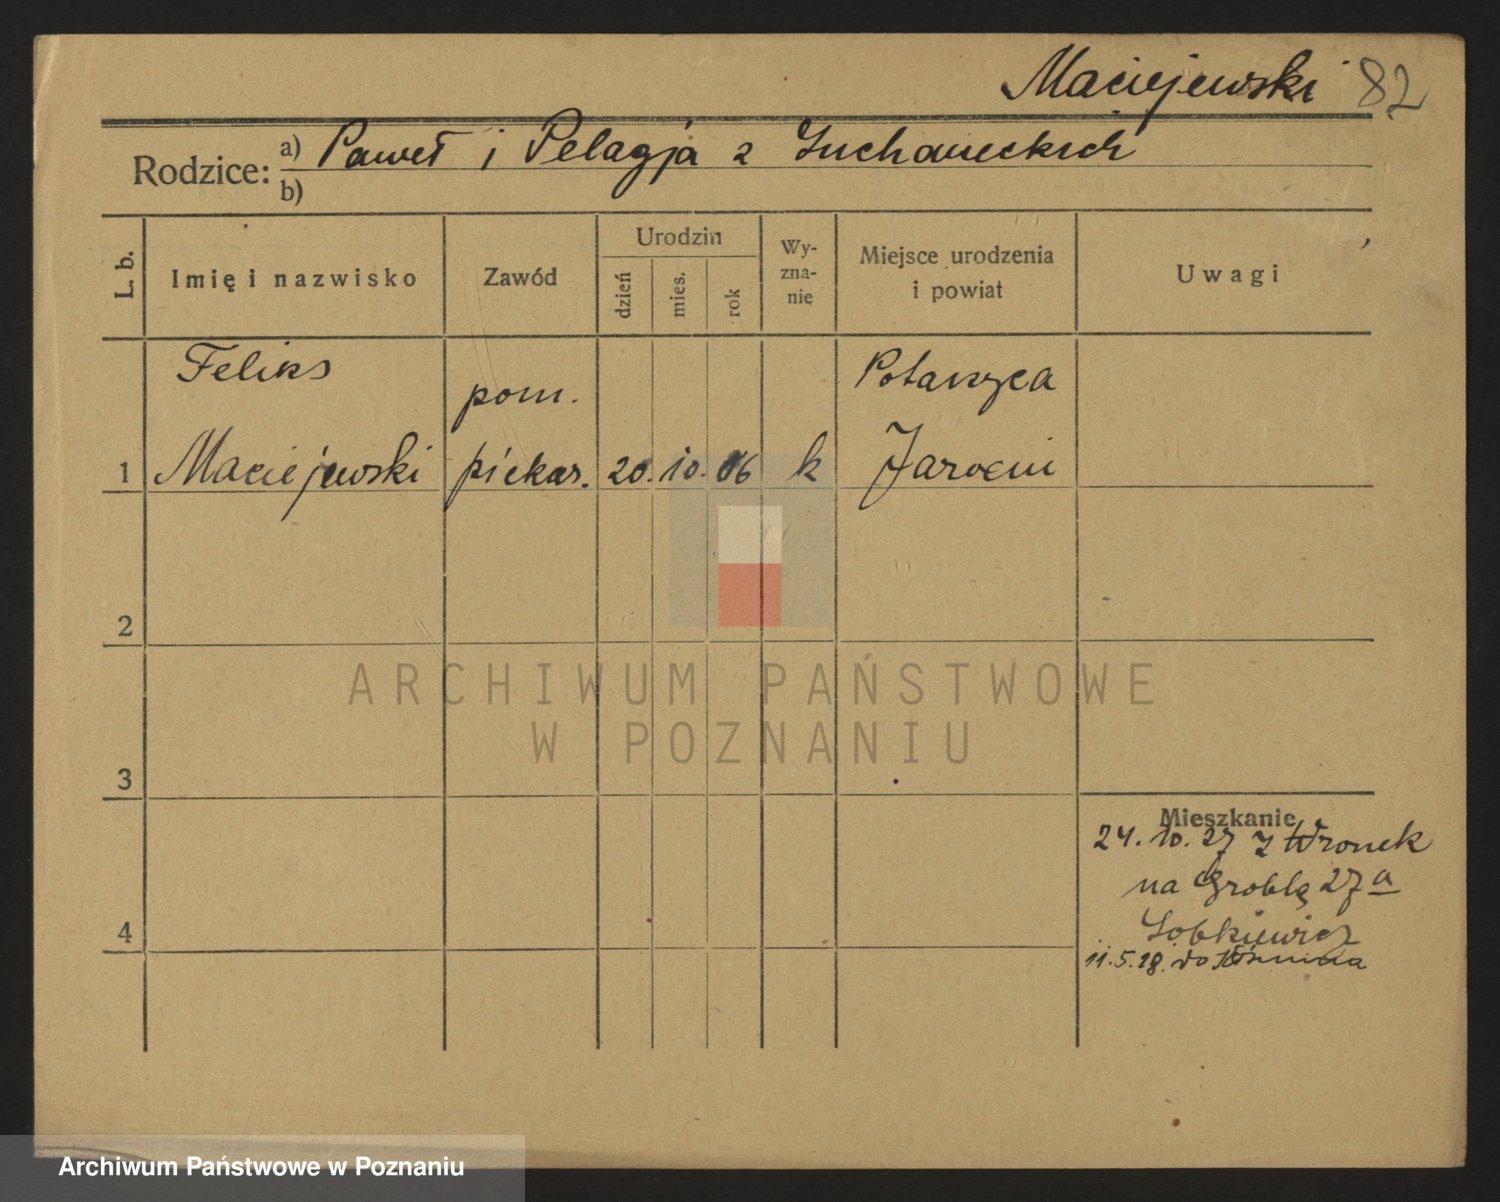 Maciejewski 82
Rodzice: a) Paweł i Pelagja z
b)
L. b.
Imię i nazwisko
Zawód
Urodzin
dzień
mies.
rok
Wy-
zna-
nie
Miejsce urodzenia
i powiat
Uwagi
Feliks
pom.
Potarzyca
1 Maciejewski piekar. 20. 10. 06 k Jarocin
2
3
4
Mieszkanie
24. 10. 27 z Wronek
na Groblę 27 a
11. 5. 28. do
ARCHIWUM PAŃSTWOWE
W POZNANIU
Archiwum Państwowe w Poznaniu